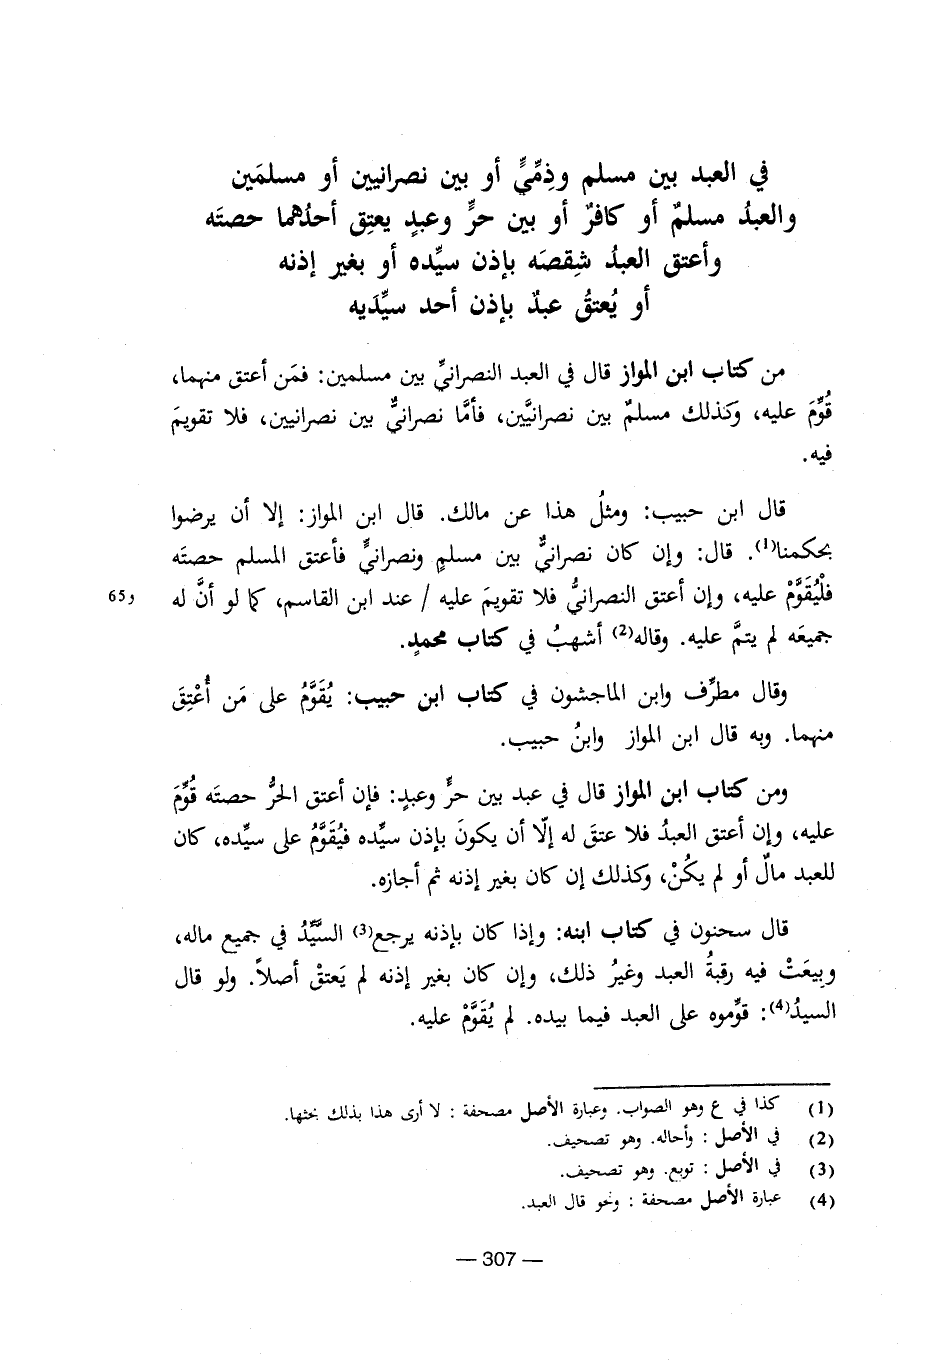 في العبد بين مسلم وذِمِّيٍّ أو بين نصرانيين أو مسلمَين
والعبدُ مسلمٌ أو كافرٌ أو بين حرٍّ وعبدٍ يعتِق أحدُهما حصتَه
وأعتق العبدُ شِقصَه بإذن سيِّده أو بغير إذنه
أو يُعتقُ عبدٌ بإذن أحد سيِّدَيه
من كتاب ابن المواز قال في العبد النصرانيِّ بين مسلمين: فمَن أعتق منهما،
قُوِّمَ عليه، وكذلك مسلمٌ بين نصرانيَّين، فأمَّا نصرانيٌّ بين نصرانيين، فلا تقويمَ
فيه.
قال ابن حبيب: ومثلُ هذا عن مالك. قال ابن المواز: إلا أن يرضوا
بحكمنا(1). قال: وإن كان نصرانيٌّ بين مسلمٍ ونصرانيٍّ فأعتق المسلم حصتَه
فلْيُقَوَّمْ عليه، وإن أعتق النصرانيُّ فلا تقويمَ عليه / عند ابن القاسم، كما لو أنَّ له
و65
جميعَه لم يتمَّ عليه. وقاله(2) أشهبُ في كتاب محمدٍ.
وقال مطرِّف وابن الماجشون في كتاب ابن حبيب: يُقَوَّمُ على مَن أُعْتِقَ
منهما. وبه قال ابن المواز وابنُ حبيب.
ومن كتاب ابن المواز قال في عبد بين حرٍّ وعبدٍ: فإن أعتق الحرُّ حصتَه قُوِّمَ
عليه، وإن أعتق العبدُ فلا عتقَ له إلّا أن يكونَ بإذن سيِّده فيُقَوَّمُ على سيِّده، كان
للعبد مالٌ أو لم يكُنْ، وكذلك إن كان بغير إذنه ثم أجازه.
قال سحنون في كتاب ابنه: وإذا كان بإذنه يرجع(3) السَّيِّدُ في جميع ماله،
وبِيعَتْ فيه رقبةُ العبد وغيرُ ذلك، وإن كان بغير إذنه لم يَعتقْ أصلاً. ولو قال
السيدُ(4): قوِّموه على العبد فيما بيده. لم يُقَوَّمْ عليه.
(1) كذا في ع وهو الصواب. وعبارة الأصل مصحفة : لا أرى هذا بذلك بحثها.
(2) في الأصل : وأحاله. وهو تصحيف.
(3) في الأصل : توبع. وهو تصحيف.
(4) عبارة الأصل مصحفة : ونحو قال العبد.
— 307 —